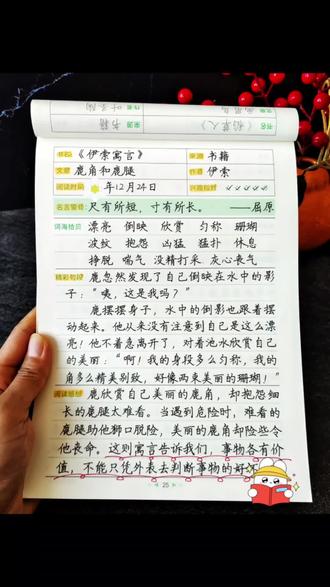 书名 《稻草人》
来源 书籍
作者 叶圣陶
书名 《伊索寓言》 来源 书籍
文章 鹿角和鹿腿 作者 伊索
阅读时间 年12月24日 兴趣指数 ✓✓✓✓✓
名言警句 尺有所短，寸有所长。 ——屈原
词海拾贝 漂亮 倒映 欣赏 匀称 珊瑚
波纹 抱怨 凶猛 猛扑 休息
挣脱 喘气 没精打采 灰心丧气
精彩句段 鹿忽然发现了自己倒映在水中的影
子：“咦，这是我吗？”
鹿摆摆身子，水中的倒影也跟着摆
动起来。他从来没有注意到自己是这么漂
亮！他不着急离开了，对着池水欣赏自己
的美丽：“啊！我的身段多么匀称，我的
角多么精美别致，好像两束美丽的珊瑚！”
阅读感悟 鹿欣赏自己美丽的鹿角，却抱怨细
长的鹿腿太难看。当遇到危险时，难看的
鹿腿助他狮口脱险，美丽的鹿角却险些令
他丧命。这则寓言告诉我们，事物各有价
值，不能只凭外表去判断事物的好坏
25